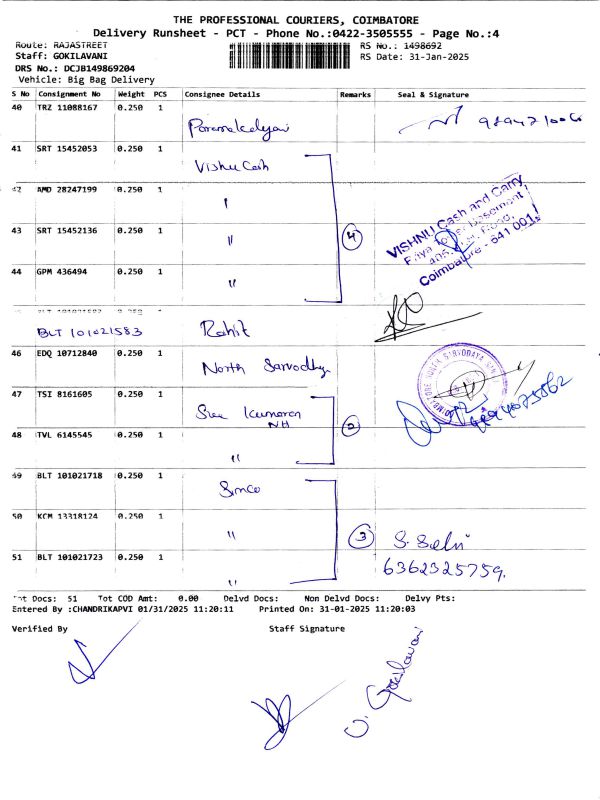 THE PROFESSIONAL COURIERS, COIMBATORE
Delivery Runsheet - PCT - Phone No.:0422-3505555 - Page No.:4
Route: RAJASTREET RS No.: 1498692
Staff: GOKILAVANI RS Date: 31-Jan-2025
DRS No.: DCJB149869204
Vehicle: Big Bag Delivery
S No Consignment No Weight PCS Consignee Details Remarks Seal & Signature
40 TRZ 11088167 0.250 1
41 SRT 15452053 0.250 1 Vishnu Cash
42 AMD 28247199 0.250 1 "
43 SRT 15452136 0.250 1 " 4
44 GPM 436494 0.250 1 "
VISHNU Cash and Carry
Basement
Road,
Coimbatore - 641 001
BLT 101021583 Rohit
46 EDQ 10712840 0.250 1 North Sarvodhya
47 TSI 8161605 0.250 1 Sree Kumaran
NH 2
48 TVL 6145545 0.250 1 "
49 BLT 101021718 0.250 1 Simco
50 KCM 13318124 0.250 1 " 3 S. Selvi
51 BLT 101021723 0.250 1 " 6362325759.
Tot Docs: 51 Tot COD Amt: 0.00 Delvd Docs: Non Delvd Docs: Delvy Pts:
Entered By :CHANDRIKAPVI 01/31/2025 11:20:11 Printed On: 31-01-2025 11:20:03
Verified By Staff Signature
V. Gokilavani